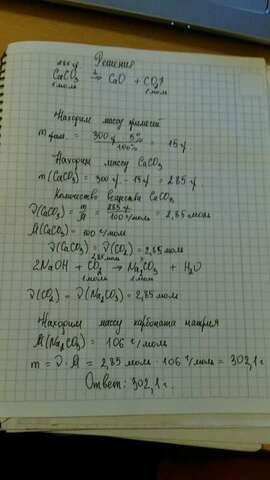 Решение
285 г
CaCO3 t→ CaO + CO2↑
1 моль 1 моль
Находим массу примесей
m прим. = 300 г · 5% / 100% = 15 г
Находим массу CaCO3
m(CaCO3) = 300 г - 15 г = 285 г
Количество вещества CaCO3
ν(CaCO3) = m/M = 285 г / 100 г/моль = 2,85 моль
M(CaCO3) = 100 г/моль
ν(CaCO3) = ν(CO2) = 2,85 моль
2,85 моль
2NaOH + CO2 → Na2CO3 + H2O
1 моль 1 моль
ν(CO2) = ν(Na2CO3) = 2,85 моль
Находим массу карбоната натрия
M(Na2CO3) = 106 г/моль
m = ν · M = 2,85 моль · 106 г/моль = 302,1 г
Ответ: 302,1 г.